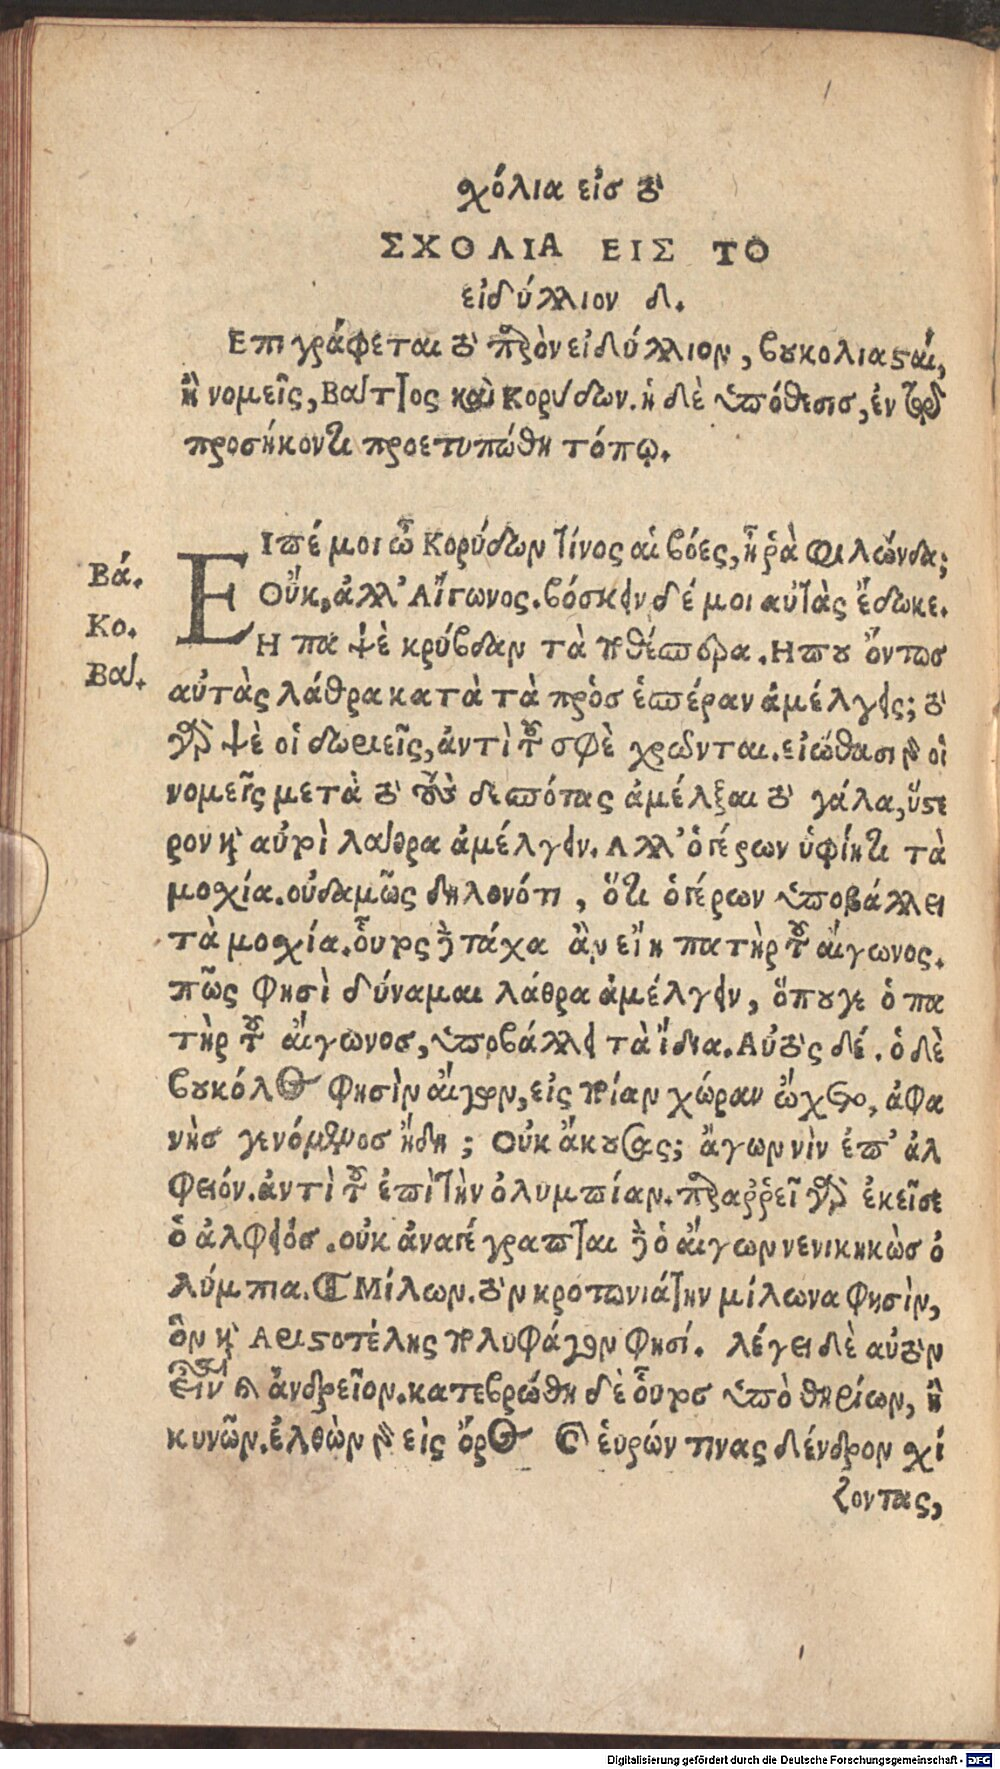 χόλια εἰσ τὸ
ΣΧΟΛΙΑ ΕΙΣ ΤΟ
εἰδύλλιον δ.
Επιγράφεται τὸ παρὸν εἰδύλλιον, βουκολιασταί,
ἢ νομεῖς, Βάττος καὶ Κορύδων. ἡ δὲ ὑπόθεσισ, ἐν τῷ
προσήκοντι προετυπώθη τόπῳ.
Βά. ΕΙπέ μοι ὦ Κορύδων τίνος αἱ βόες, ἦ ῥὰ Φιλώνδα;
Κο. Οὔκ, ἀλλ' Αἴγωνος. βόσκειν δέ μοι αὐτὰς ἔδωκε.
Βατ. Η πα ψὲ κρύβδαν τὰ ποθέσπερα. Ηπου ὄντωσ
αὐτὰς λάθρα κατὰ τὰ πρὸσ ἑσπέραν ἀμέλγεις; τὸ
γὰρ ψὲ οἱ δωριεῖς, ἀντὶ τοῦ σφὲ χρῶνται. εἰώθασι γὰρ οἱ
νομεῖς μετὰ τὸ τοὺς δεσπότας ἀμέλξαι τὸ γάλα, ὕστε
ρον καὶ αὐτοὶ λάθρα ἀμέλγειν. Αλλ' ὁ γέρων ὑφίητι τὰ
μοχία. οὐδαμῶς δηλονότι, ὅτι ὁ γέρων ὑποβάλλει
τὰ μοχία. οὗτος δὲ τάχα ἂν εἴη πατὴρ τοῦ αἴγωνος.
πῶς φησὶ δύναμαι λάθρα ἀμέλγειν, ὅπουγε ὁ πα
τὴρ τοῦ αἴγωνοσ, ὑποβάλλει τὰ ἴδια. Αὐτὸς δέ. ὁ δὲ
βουκόλος φησὶν αἴγων, εἰς ποίαν χώραν ᾤχετο, ἀφα
νὴσ γενόμενοσ ἤδη; Οὐκ ἄκουσας; ἄγων νὶν ἐπ' ἀλ
φειόν. ἀντὶ τοῦ ἐπὶ τὴν ὀλυμπίαν. παραῤῥεῖ γὰρ ἐκεῖσε
ὁ ἀλφειόσ. οὐκ ἀναγέγραπται δὲ ὁ αἴγων νενικηκὼσ ὀ
λύμπια. Μίλων. τὸν κροτωνιάτην μίλωνα φησὶν,
ὃν καὶ Αριστοτέλης πολυφάγον φησί. λέγει δὲ αὐτὸν
εἶναι καὶ ἀνδρεῖον. κατεβρώθη δὲ οὗτοσ ὑπὸ θηρίων, ἢ
κυνῶν. ἐλθὼν γὰρ εἰς ὄρος καὶ ἑυρών τινας δένδρον χί
ζοντας,
Digitalisierung gefördert durch die Deutsche Forschungsgemeinschaft - DFG